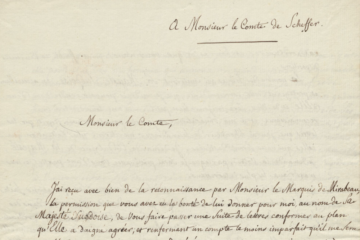 A Monsieur le Comte de Scheffer.
Monsieur le Comte,
J'ai reçu avec bien de la reconnaissance par Monsieur le Marquis de Mirabeau,
la permission que vous avez eu la bonté de lui donner pour moi, au nom de Sa
Majesté Suédoise, de vous faire passer une Suite de lettres conforme au plan
qu'Elle a daigné agréer, et renfermant un compte le moins imparfait qu'il me